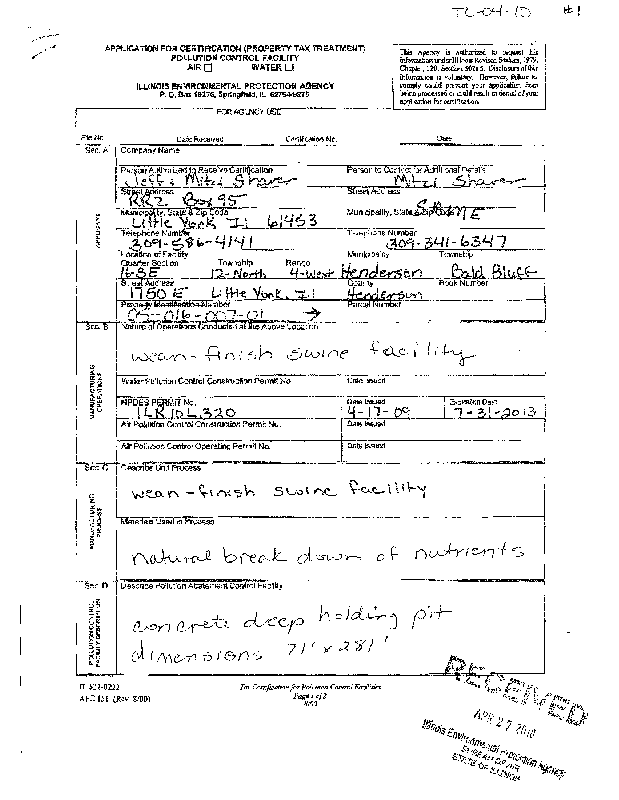 TC-04-10 #1
APPLICATION FOR CERTIFICATION (PROPERTY TAX TREATMENT)
POLLUTION CONTROL FACILITY
AIR ☐ WATER ☐
ILLINOIS ENVIRONMENTAL PROTECTION AGENCY
P. O. Box 19276, Springfield, IL 62794-9276
This Agency is authorized to request this
information under Illinois Revised Statutes, 1979,
Chapter 120, Section 502a-5. Disclosure of this
information is voluntary. However, failure to
comply could prevent your application from
being processed or could result in denial of your
application for certification.
FOR AGENCY USE
File No. Date Received Certification No. Date
Sec. A Company Name
Person Authorized to Receive Certification Person to Contact for Additional Details
Jeff & Mitzi Shaver Mitzi Shaver
Street Address Street Address
RR2 Box 95
Municipality, State & Zip Code Municipality, State & Zip Code
Little York Il 61453 SAME
Telephone Number Telephone Number
309-586-4141 309-341-6347
Location of Facility Municipality Township
Quarter Section Township Range
16 SE 12-North 4-West Henderson Bald Bluff
Street Address County Book Number
1750 E Little York, Il Henderson
Property Identification Number Parcel Number
05-016-007-01 →
APPLICANT
Sec. B Nature of Operations Conducted at the Above Location
wean-finish swine facility
Water Pollution Control Construction Permit No. Date Issued
NPDES PERMIT No. Date Issued Expiration Date
ILR10L320 4-17-09 7-31-2013
Air Pollution Control Construction Permit No. Date Issued
Air Pollution Control Operating Permit No. Date Issued
MANUFACTURING
OPERATIONS
Sec. C Describe Unit Process
wean-finish swine facility
Materials Used in Process
natural break down of nutrients
MANUFACTURING
PROCESS
Sec. D Describe Pollution Abatement Control Facility
concrete deep holding pit
dimensions 71' x 281'
POLLUTION CONTROL
FACILITY DESCRIPTION
IL 532-0222
APC 151 (Rev. 8/00)
Tax Certification for Pollution Control Facilities
Page 1 of 2
RECEIVED
APR 27 2010
Illinois Environmental Protection Agency
BUREAU OF AIR
STATE OF ILLINOIS